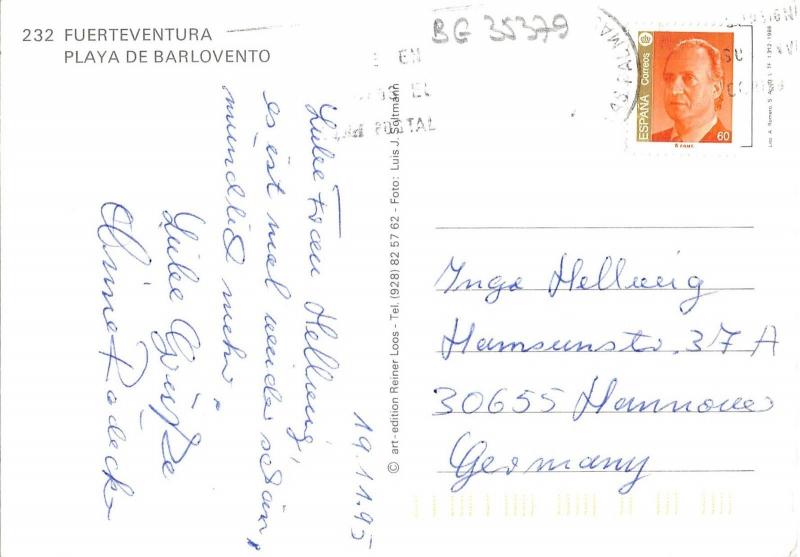 232 FUERTEVENTURA
PLAYA DE BARLOVENTO
BG 35379
ESPAÑA
Correos
60
19.11.95
Liebe Frau Hellwig,
es ist mal wieder schön,
mündlich mehr.
Liebe Grüße
© art-edition Reiner Loos - Tel. (928) 82 57 62 - Foto: Luis J. Soltmann
Inge Hellwig
Hamsunstr. 37 A
30655 Hannover
Germany